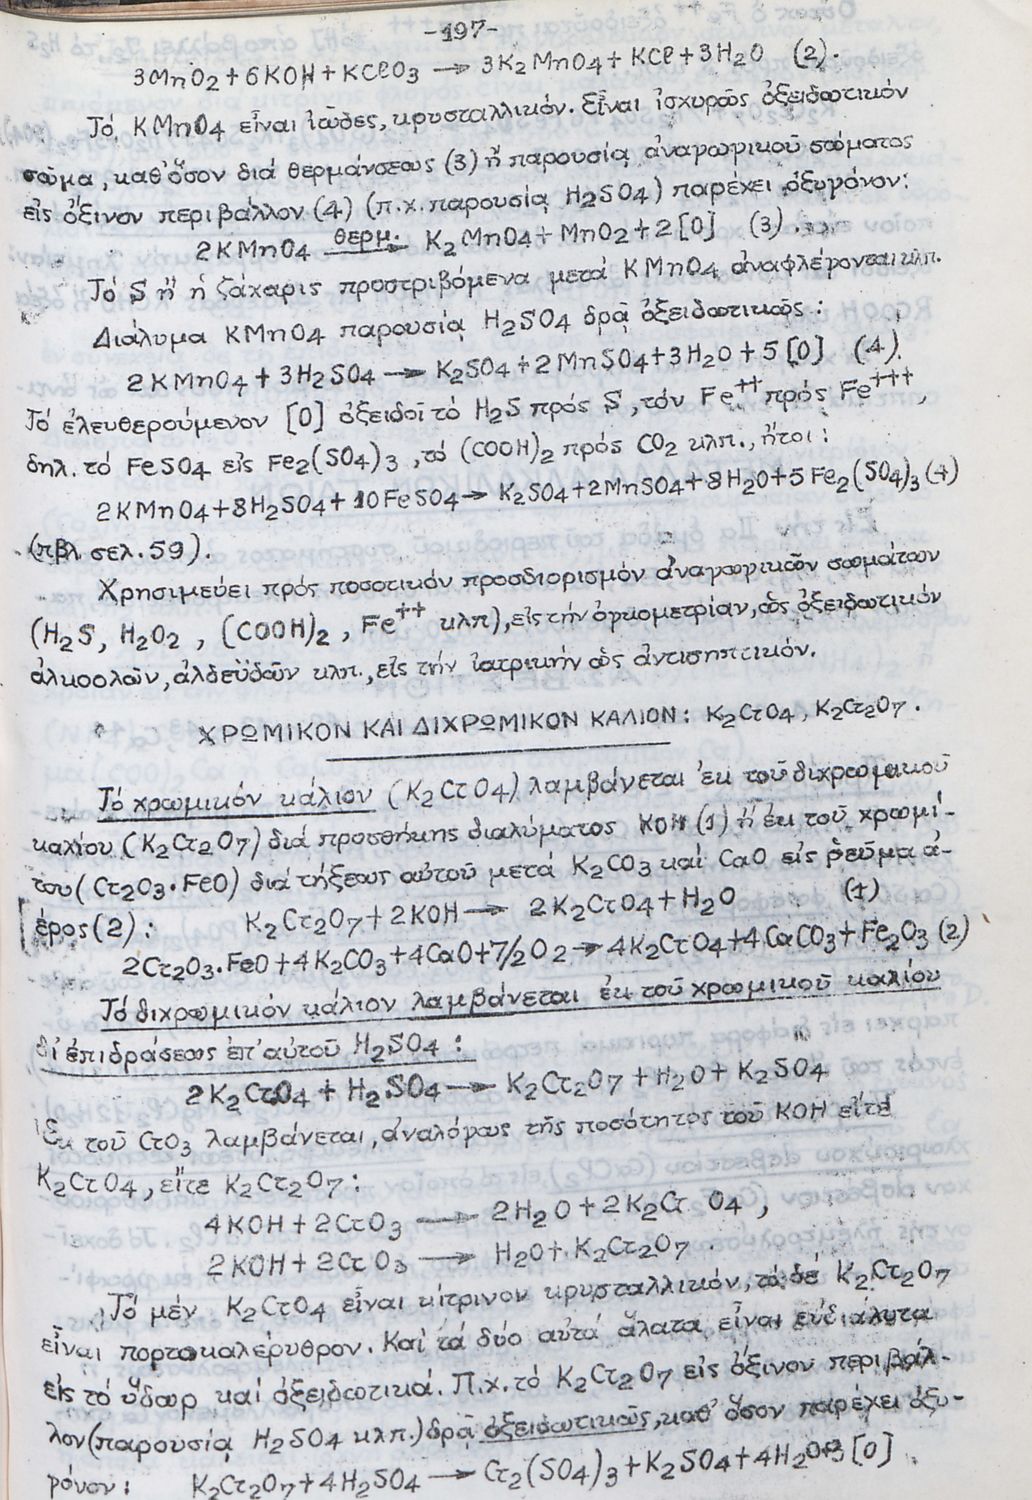 -197-
3MnO2+6KOH+KClO3 → 3K2MnO4+KCl+3H2O (2).
Τό KMnO4 εἶναι ἰῶδες, κρυσταλλικόν. Εἶναι ἰσχυρῶς ὀξειδωτικόν
σῶμα, καθ'ὅσον διά θερμάνσεως (3) ἤ παρουσίᾳ ἀναγωγικοῦ σώματος
εἰς ὄξινον περιβάλλον (4) (π.χ. παρουσίᾳ H2SO4) παρέχει ὀξυγόνον:
2KMnO4 θερμ.→ K2MnO4+MnO2+2[O] (3).
Τό S ἤ ἡ ζάχαρις προστριβόμενα μετά KMnO4 ἀναφλέγονται κλπ.
Διάλυμα KMnO4 παρουσίᾳ H2SO4 δρᾷ ὀξειδωτικῶς:
2KMnO4+3H2SO4 → K2SO4+2MnSO4+3H2O+5[O] (4).
Τό ἐλευθερούμενον [O] ὀξειδοῖ τό H2S πρός S, τόν Fe++ πρός Fe+++,
δηλ. τό FeSO4 εἰς Fe2(SO4)3, τό (COOH)2 πρός CO2 κλπ., ἤτοι:
2KMnO4+8H2SO4+10FeSO4→ K2SO4+2MnSO4+8H2O+5Fe2(SO4)3 (4)
(πβλ σελ. 59).
Χρησιμεύει πρός ποσοτικόν προσδιορισμόν ἀναγωγικῶν σωμάτων
(H2S, H2O2, (COOH)2, Fe++ κλπ), εἰς τήν ὀγκομετρίαν, ὡς ὀξειδωτικόν
ἀλκοολῶν, ἀλδεϋδῶν κλπ., εἰς τήν ἰατρικήν ὡς ἀντισηπτικόν.
ΧΡΩΜΙΚΟΝ ΚΑΙ ΔΙΧΡΩΜΙΚΟΝ ΚΑΛΙΟΝ: K2CrO4, K2Cr2O7.
Τό χρωμικόν κάλιον (K2CrO4) λαμβάνεται ἐκ τοῦ διχρωμικοῦ
καλίου (K2Cr2O7) διά προσθήκης διαλύματος KOH (1) ἤ ἐκ τοῦ χρωμί-
του (Cr2O3·FeO) διά τήξεως αὐτοῦ μετά K2CO3 καί CaO εἰς ῥεῦμα ἀ-
έρος (2): K2Cr2O7+2KOH→ 2K2CrO4+H2O (1)
2Cr2O3·FeO+4K2CO3+4CaO+7/2O2→4K2CrO4+4CaCO3+Fe2O3 (2)
Τό διχρωμικόν κάλιον λαμβάνεται ἐκ τοῦ χρωμικοῦ καλίου
δι'ἐπιδράσεως ἐπ'αὐτοῦ H2SO4:
2K2CrO4+H2SO4→ K2Cr2O7+H2O+K2SO4
Ἐκ τοῦ CrO3 λαμβάνεται, ἀναλόγως τῆς ποσότητος τοῦ KOH εἴτε
K2CrO4, εἴτε K2Cr2O7:
4KOH+2CrO3 → 2H2O+2K2CrO4,
2KOH+2CrO3 → H2O+K2Cr2O7.
Τό μέν K2CrO4 εἶναι κίτρινον κρυσταλλικόν, τό δέ K2Cr2O7
εἶναι πορτοκαλέρυθρον. Καί τά δύο αὐτά ἅλατα εἶναι εὐδιάλυτα
εἰς τό ὕδωρ καί ὀξειδωτικά. Π.χ. τό K2Cr2O7 εἰς ὄξινον περιβάλ-
λον (παρουσίᾳ H2SO4 κλπ.) δρᾷ ὀξειδωτικῶς, καθ' ὅσον παρέχει ὀξυ-
γόνον: K2Cr2O7+4H2SO4 → Cr2(SO4)3+K2SO4+4H2O+3[O].